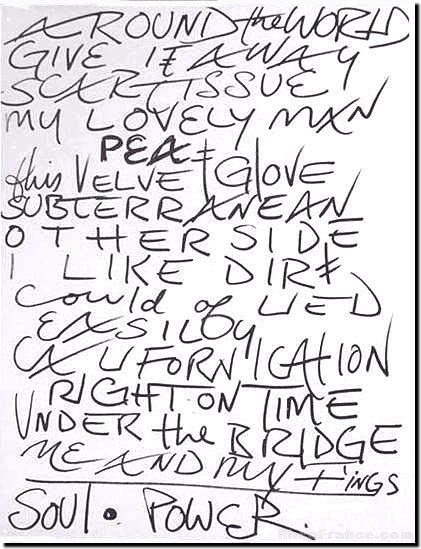 AROUND the WORLD
GIVE IT AWAY
SCAR TISSUE
MY LOVELY MAN
PEA
this VELVET GLOVE
SUBTERRANEAN
OTHERSIDE
I LIKE DIRT
COULD of LIED
EASILY
CALIFORNICATION
RIGHT ON TIME
UNDER the BRIDGE
ME AND MY
SOUL • POWER.